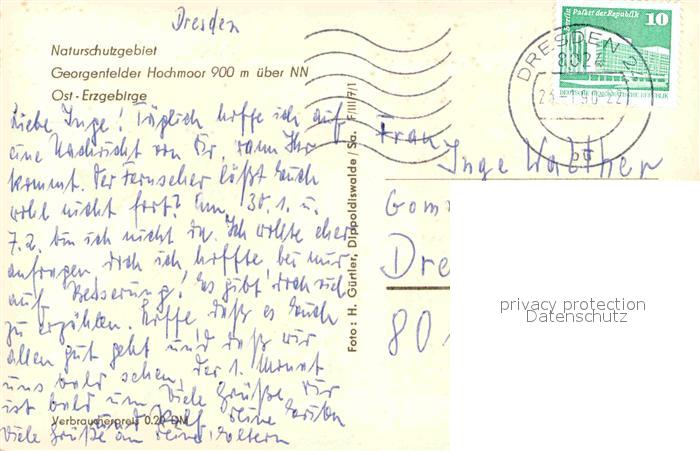 Dresden
Naturschutzgebiet
Georgenfelder Hochmoor 900 m über NN
Ost-Erzgebirge
Liebe Inge! Täglich hoffe ich auf
eine Nachricht von Dir, wann Ihr
kommt. Der Fernseher läßt Euch
wohl nicht fort? Am 30.1. u.
7.2. bin ich nicht da. Ich wollte eher
anfragen, doch ich hoffte bei mir
auf Besserung! Es gibt doch viel
zu erzählen. Hoffe, daß es Euch
allen gut geht und daß wir
uns bald sehen, der 1. Monat
ist bald um. Viele Grüße Dir
und Rolf, Deine
Viele Grüße an Deine Eltern
Verbraucherpreis 0.20 DM
Foto: H. Gürtler, Dippoldiswalde/Sa. F/III/7/1
Frau
Inge Walther
Gom
Dre
80
Berlin Palast der Republik 10
DEUTSCHE DEMOKRATISCHE REPUBLIK
DRESDEN 24
8024
-1.90-22
bd
privacy protection
Datenschutz